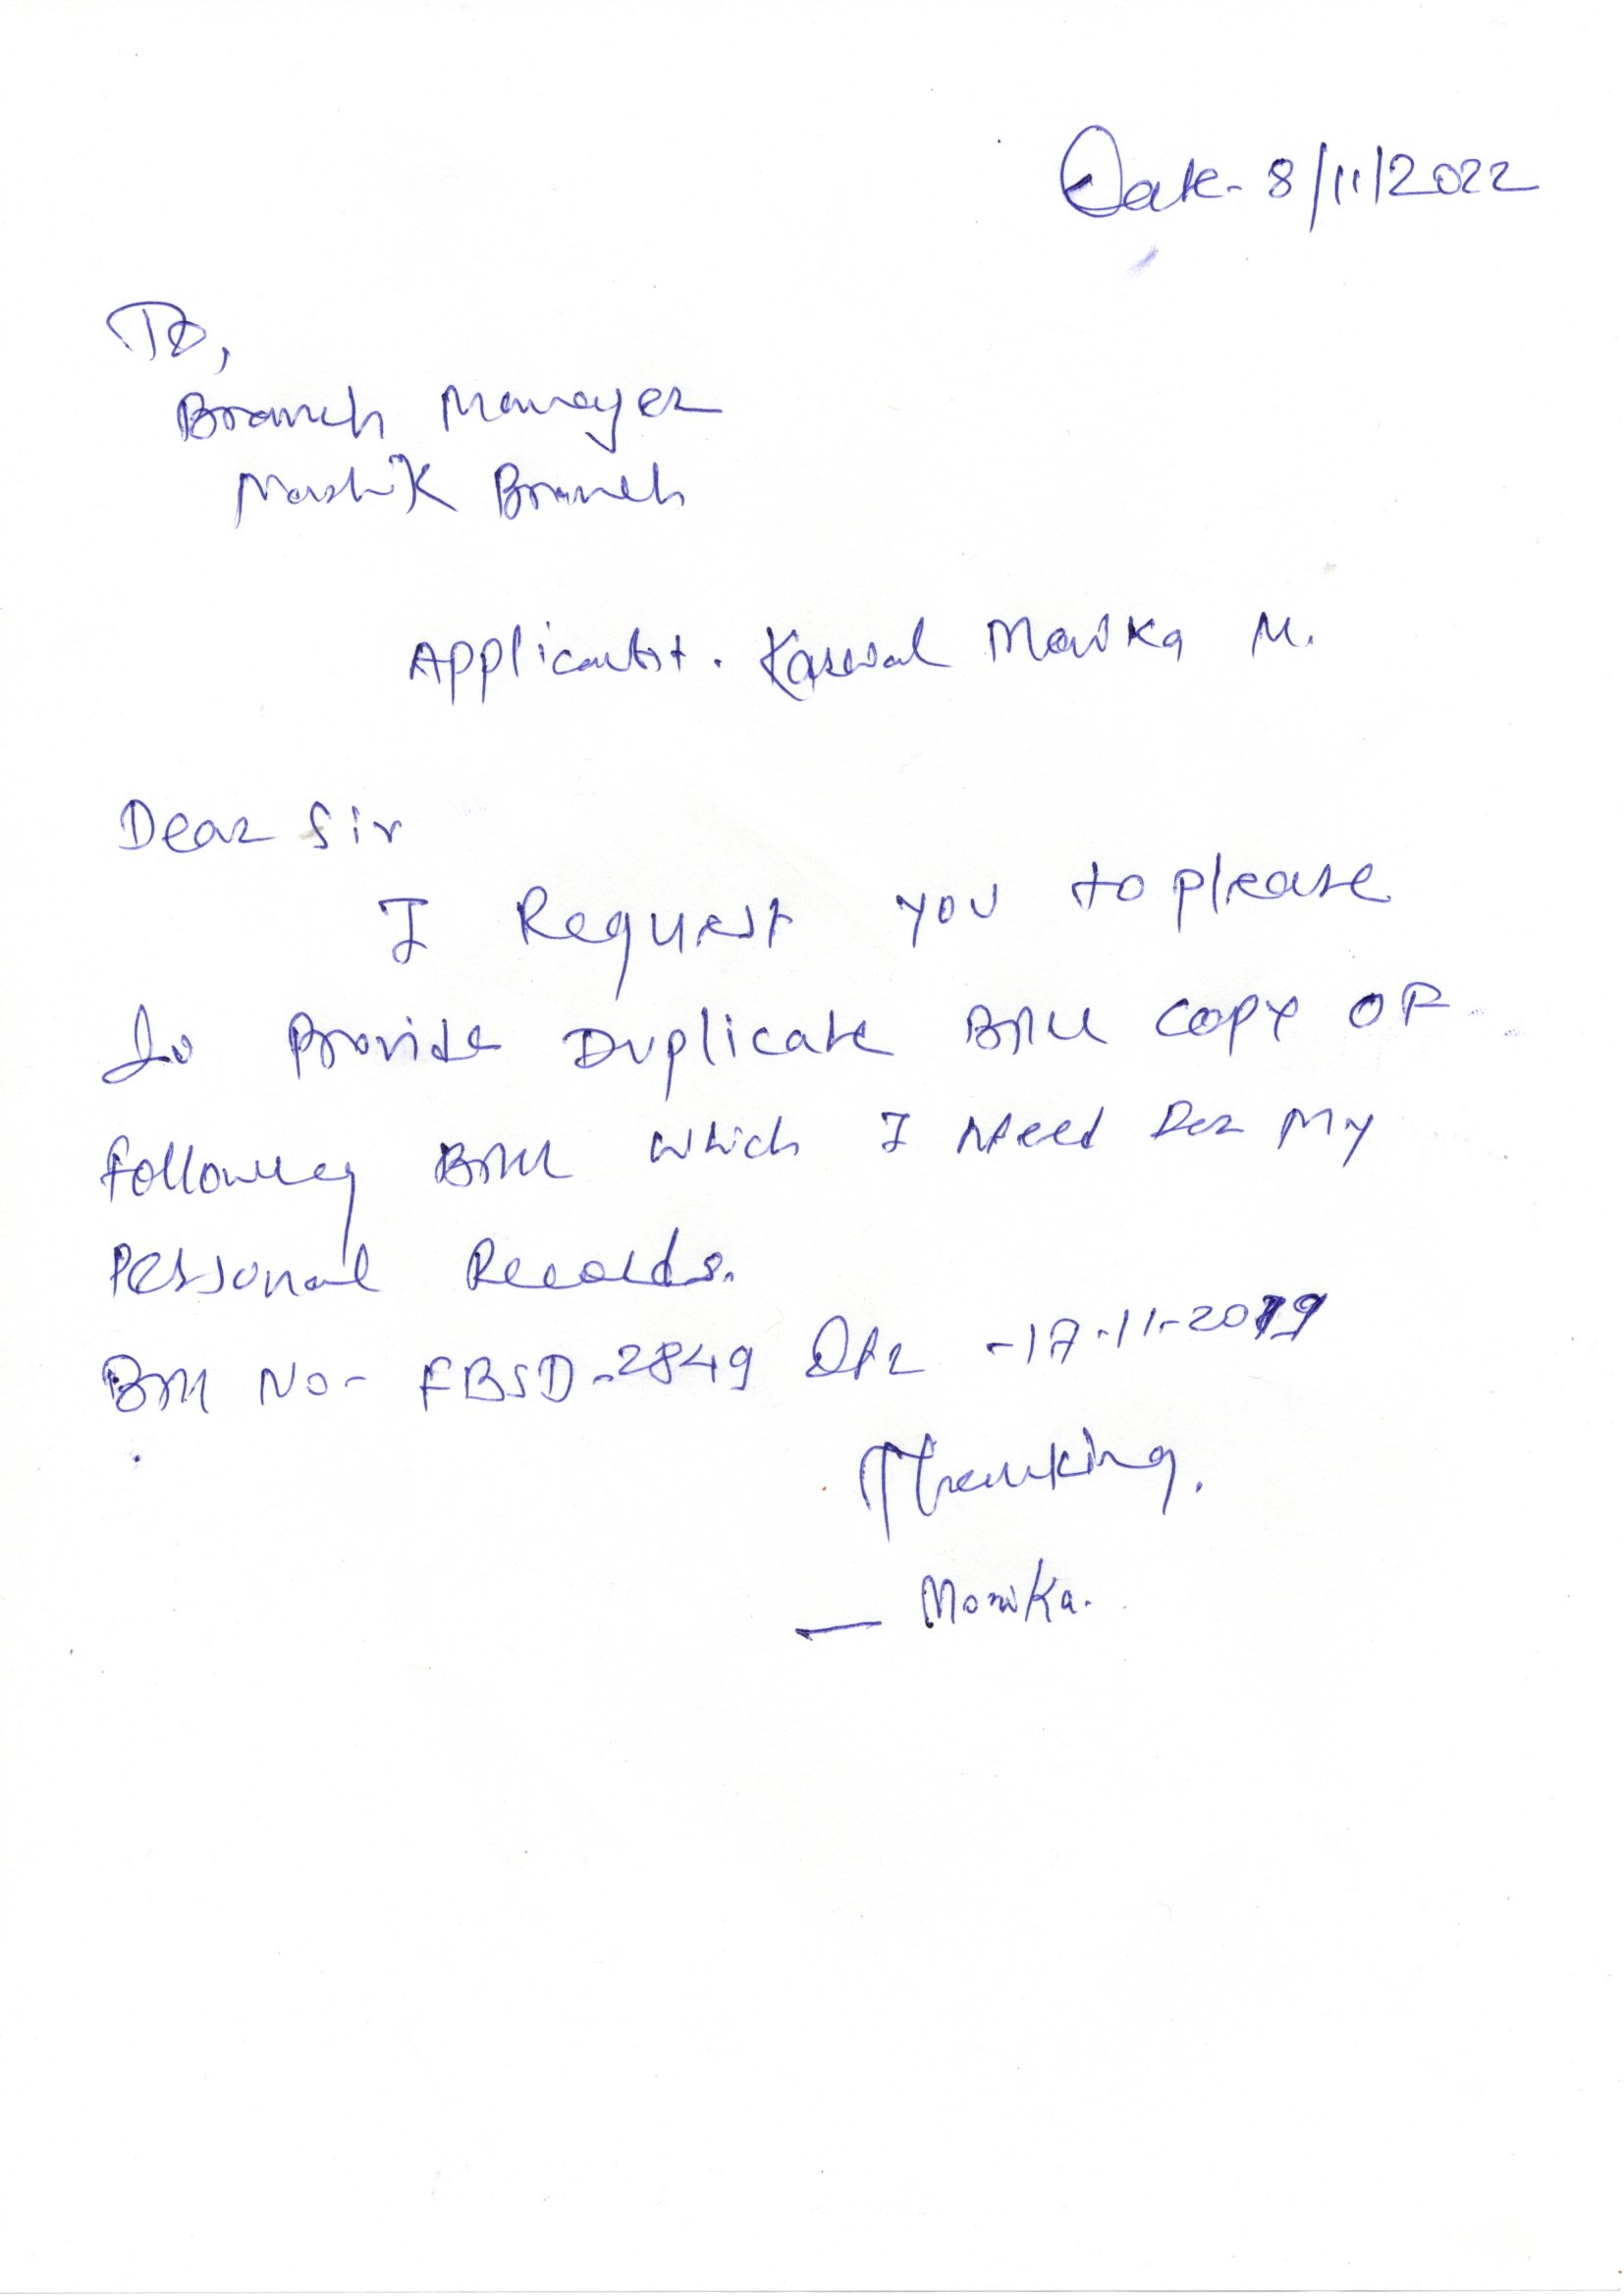 Date- 8/11/2022
To,
Branch Manager
Nashik Branch
Applicant. Monika M.
Dear Sir
I Request you to please
to Provide Duplicate Bill copy OF
following Bill which I Need For My
Personal Records.
Bill No- FBSD-2849 -17-11-2019
Thanking.
— Monika.